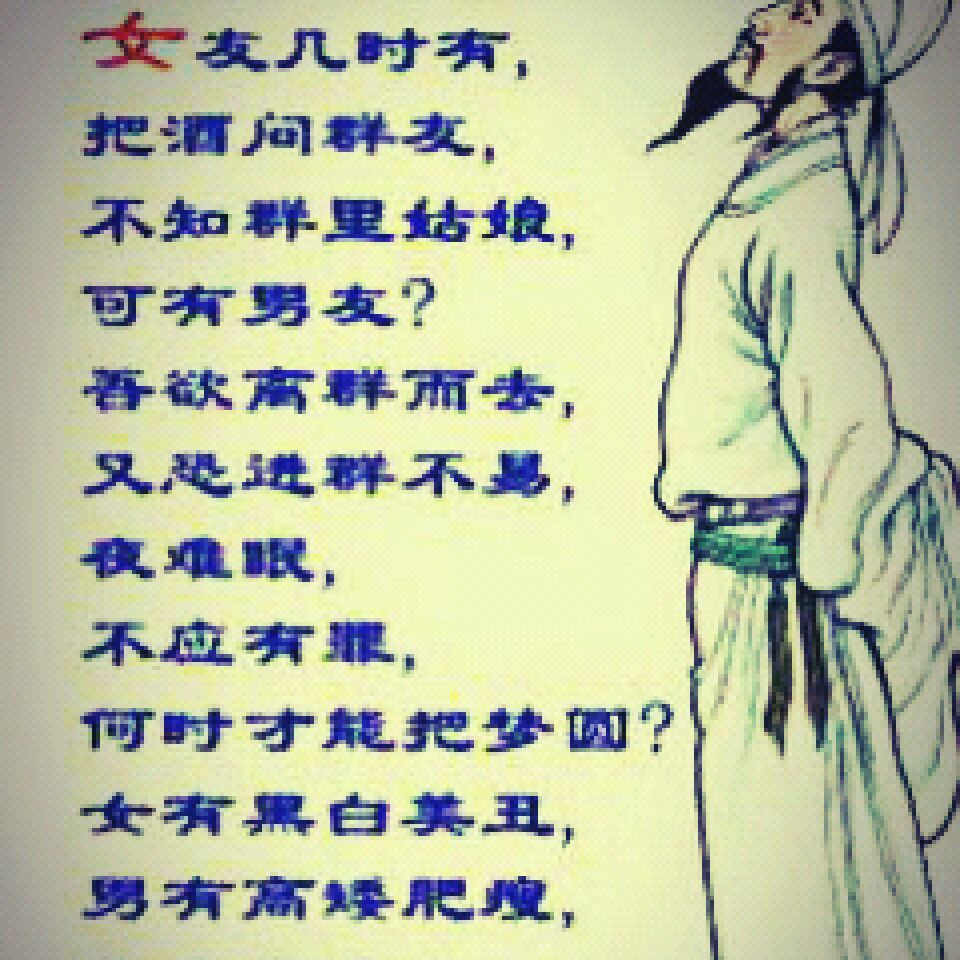 女友几时有，
把酒问群友，
不知群里姑娘，
可有男友？
吾欲离群而去，
又恐进群不易，
夜难眠，
不应有罪，
何时才能把梦圆？
女有黑白美丑，
男有高矮肥瘦，